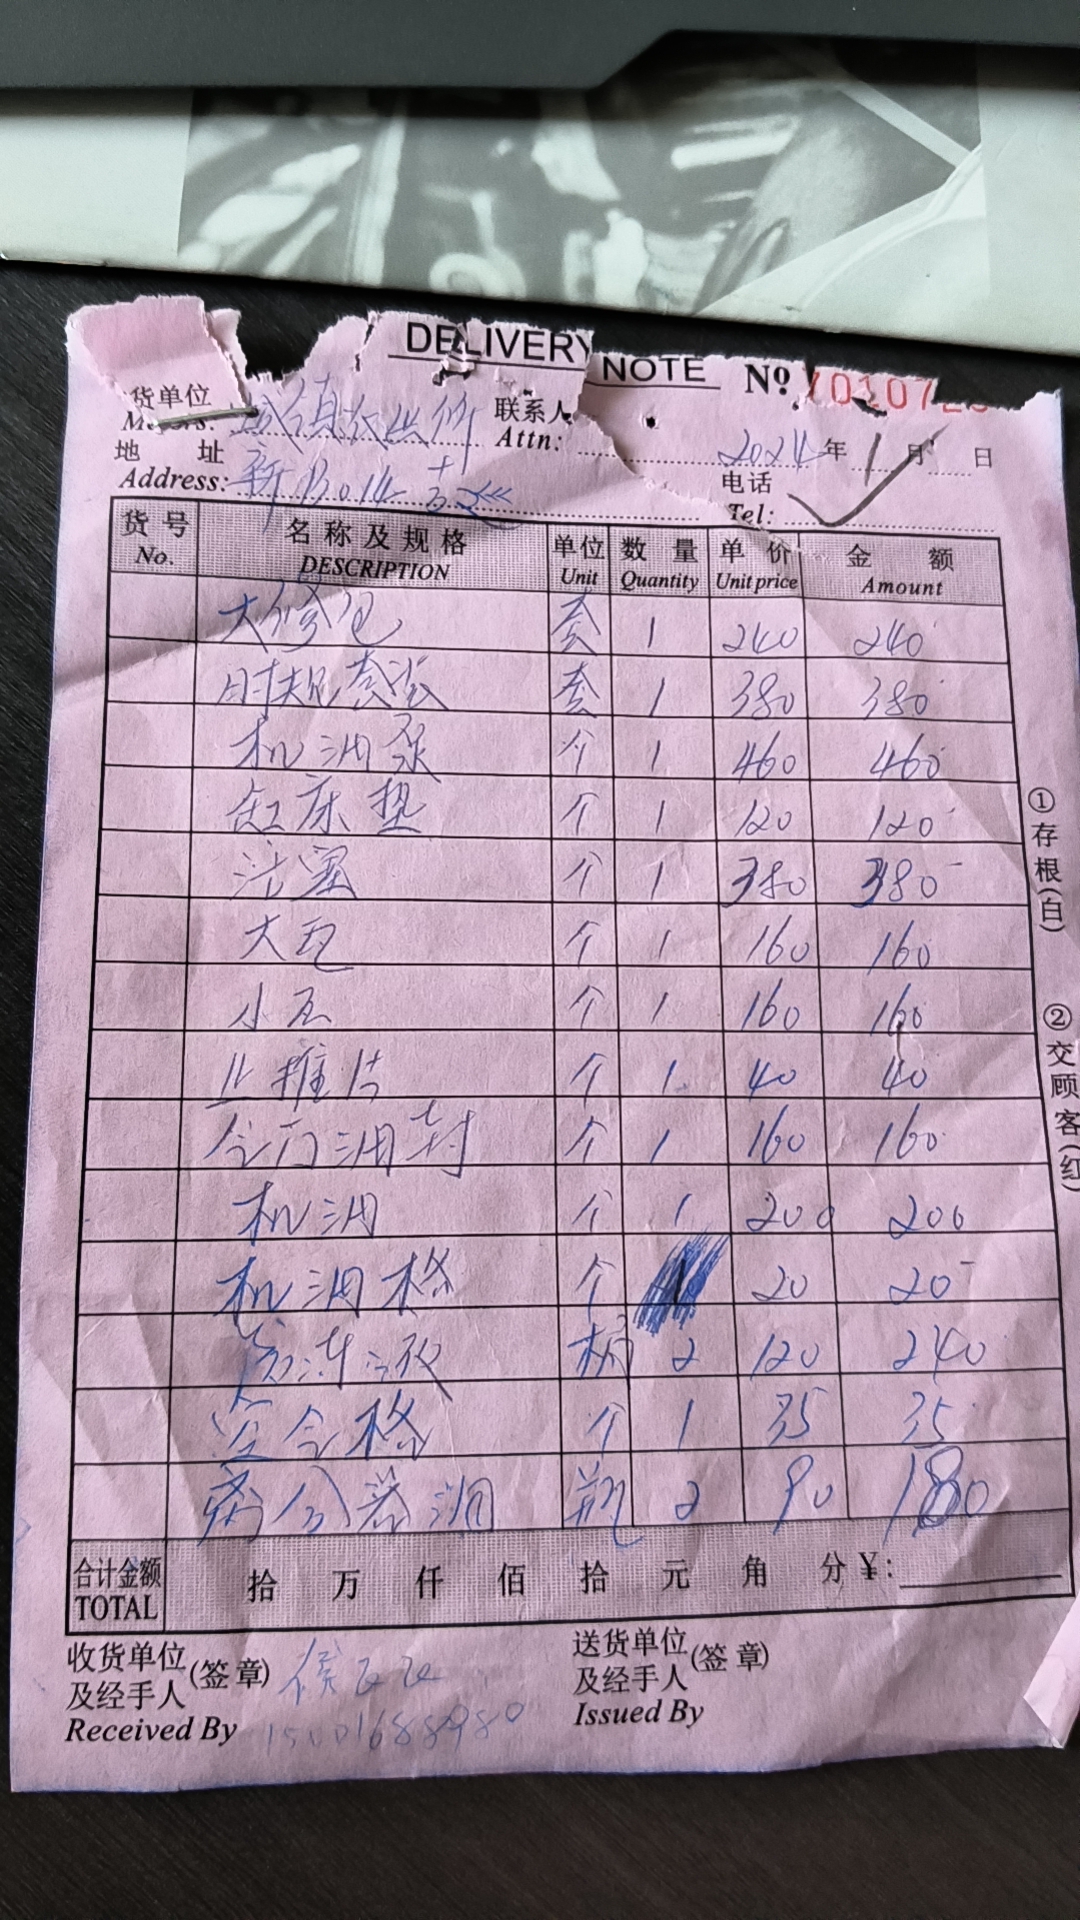 DELIVERY NOTE No
货单位 联系人
Attn: 2024年1月 日
地 址 电话
Address: 新 Tel:
货号 名称及规格 单位 数量 单价 金额
No. DESCRIPTION Unit Quantity Unit price Amount
大修包 套 1 240 240
时规套装 套 1 380 380
机油泵 个 1 460 460
缸床垫 个 1 120 120
活塞 个 1 380 380
大瓦 个 1 160 160
小瓦 个 1 160 160
止推片 个 1 40 40
油封 个 1 160 160
机油 个 1 200 200
机油格 个 20 20
防冻液 桶 2 120 240
空气格 个 1 35 35
油 瓶 2 90 180
合计金额 拾 万 仟 佰 拾 元 角 分 ¥:
TOTAL
收货单位 送货单位
及经手人 (签章) 及经手人 (签章)
Received By Issued By
①存根(白)
②交顾客(红)